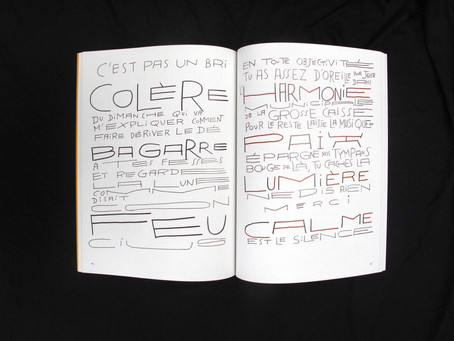 C'EST PAS UN BRI
COLÈRE
DU DIMANCHE QUI VA
M'EXPLIQUER COMMENT
FAIRE DÉRIVER LE DÉ
BAGARRE
À TES FESSES
ET REGARDE
LA LUNE
DISAIT
CON
FEU
CIUS
EN TOUTE OBJECTIVITÉ
TU AS ASSEZ D'OREILLE POUR JOUER
HARMONIE
MUNICIPALE
DE LA GROSSE CAISSE
POUR LE RESTE LAISSE LA MUSIQUE
PAIX
ÉPARGNE MES TYMPANS
BOUGE DE LÀ, TU CACHES LA
LUMIÈRE
NE DIS RIEN
MERCI
CALME
EST LE SILENCE